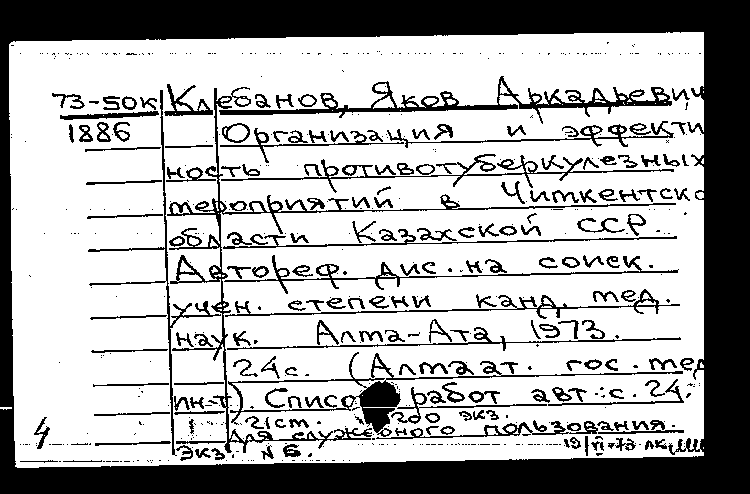 73-50к Клебанов, Яков Аркадьевич
1886 Организация и эффекти
ность противотуберкулезных
мероприятий в Чимкентско
области Казахской ССР.
Автореф. дис. на соиск.
учен. степени канд. мед.
наук. Алма-Ата, 1973.
24с. (Алмаат. гос. мед
ин-т). Списо работ авт.: с. 24.
21ст. 200 экз.
Для служебного пользования.
Экз. N 6.
4